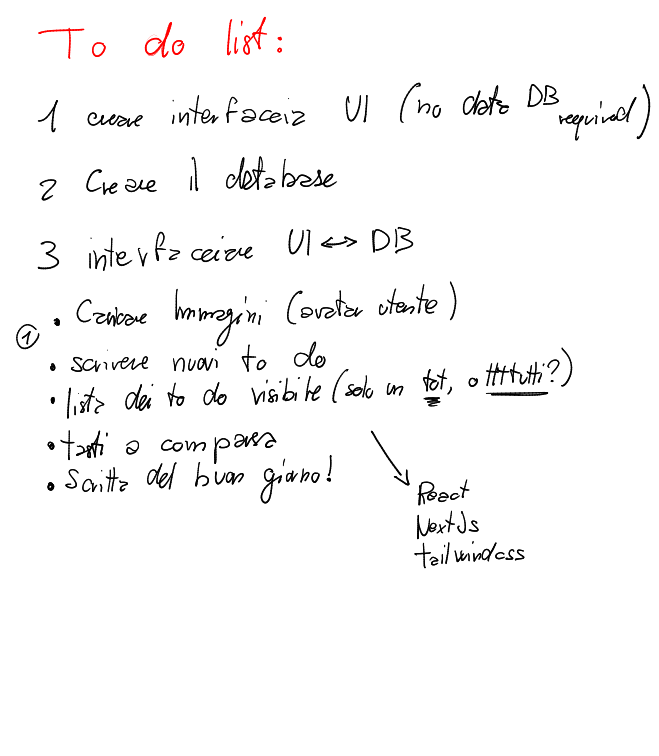 To do list:
1 creare interfaccia UI (no data DB required)
2 Creare il database
3 interfacciare UI <-> DB
①
• Caricare Immagini (avatar utente)
• scrivere nuovi to do
• lista dei to do visibile (solo un tot, o ttttutti?)
• tasti a comparsa
• Scritta del buon giorno!
React
NextJs
tailwindcss